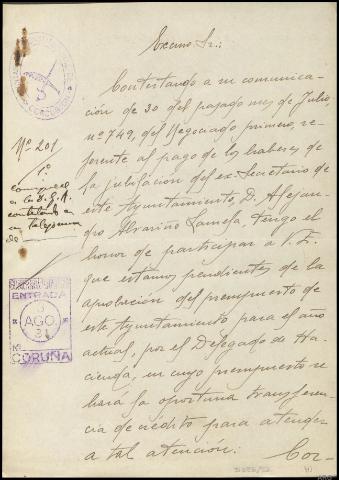 Excmo. Sr.:
Contestando a su comunica-
ción de 30 del pasado mes de Julio,
nº 749, del Negociado primero, re-
ferente al pago de los haberes de
la jubilación del ex-Secretario de
este Ayuntamiento, D. Alejan-
dro Alvariño Lamela, tengo el
honor de participar a V. E.
que estamos pendientes de la
aprobación del presupuesto de
este Ayuntamiento para el año
actual, por el Delegado de Ha-
cienda, en cuyo presupuesto se
hará la oportuna transferen-
cia de crédito para atender
a tal atención. Cor-
Nº 201
ENTRADA
AGO.
CORUÑA